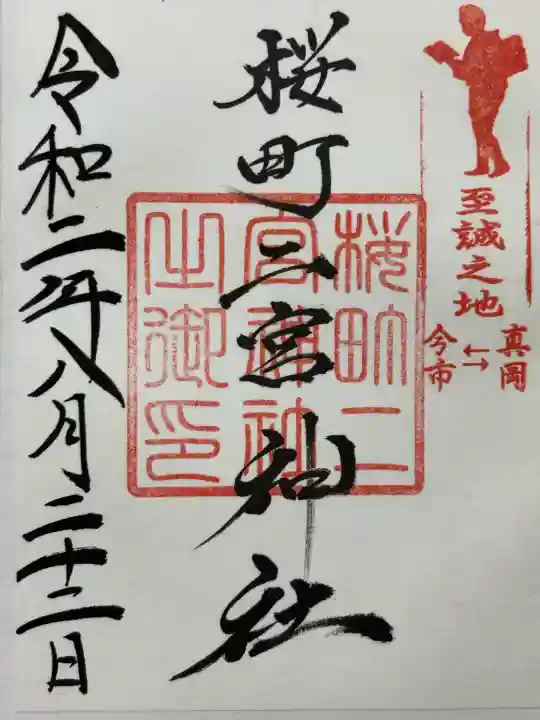 至誠之地
真岡
←→
今市
桜町二宮神社
桜町二
宮神社
之御印
令和二年八月二十二日